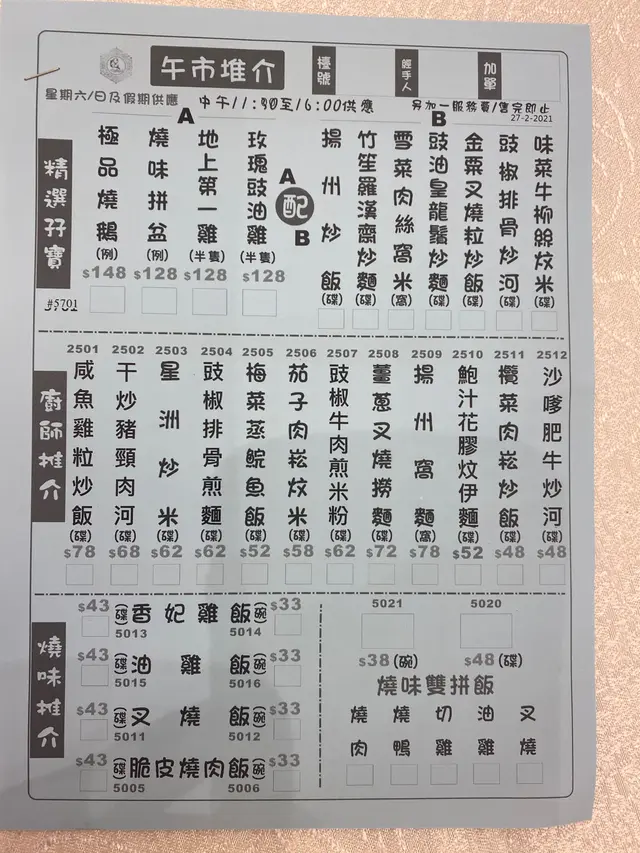 午市堆介
檯號
經手人
加單
星期六/日及假期供應
中午11:30至16:00供應
另加一服務員/售完即止
27-2-2021
精選孖寶
A
極品燒鵝(例)
$148
燒味拼盆(例)
$128
地上第一雞(半隻)
$128
玫瑰豉油雞(半隻)
$128
A
配
B
B
揚州炒飯(碟)
竹笙羅漢齋炒麵(碟)
雪菜肉絲窩米(窩)
豉油皇龍鬚炒麵(碟)
金粟叉燒粒炒飯(碟)
豉椒排骨炒河(碟)
味菜牛柳絲炆米(碟)
#5701
廚師推介
2501
咸魚雞粒炒飯(碟)
$78
2502
干炒豬頸肉河(碟)
$68
2503
星洲炒米(碟)
$62
2504
豉椒排骨煎麵(碟)
$62
2505
梅菜蒸鯇魚飯(碟)
$52
2506
茄子肉崧炆米(碟)
$58
2507
豉椒牛肉煎米粉(碟)
$62
2508
薑蔥叉燒撈麵(碟)
$72
2509
揚州窩麵(窩)
$78
2510
鮑汁花膠炆伊麵(碟)
$52
2511
欖菜肉崧炒飯(碟)
$48
2512
沙嗲肥牛炒河(碟)
$48
燒味推介
$43 (碟)香妃雞飯(碗) $33
5013 5014
$43 (碟)油雞飯(碗) $33
5015 5016
$43 (碟)叉燒飯(碗) $33
5011 5012
$43 (碟)脆皮燒肉飯(碗) $33
5005 5006
5021 5020
$38(碗) $48(碟)
燒味雙拼飯
燒肉
燒鴨
切雞
油雞
叉燒